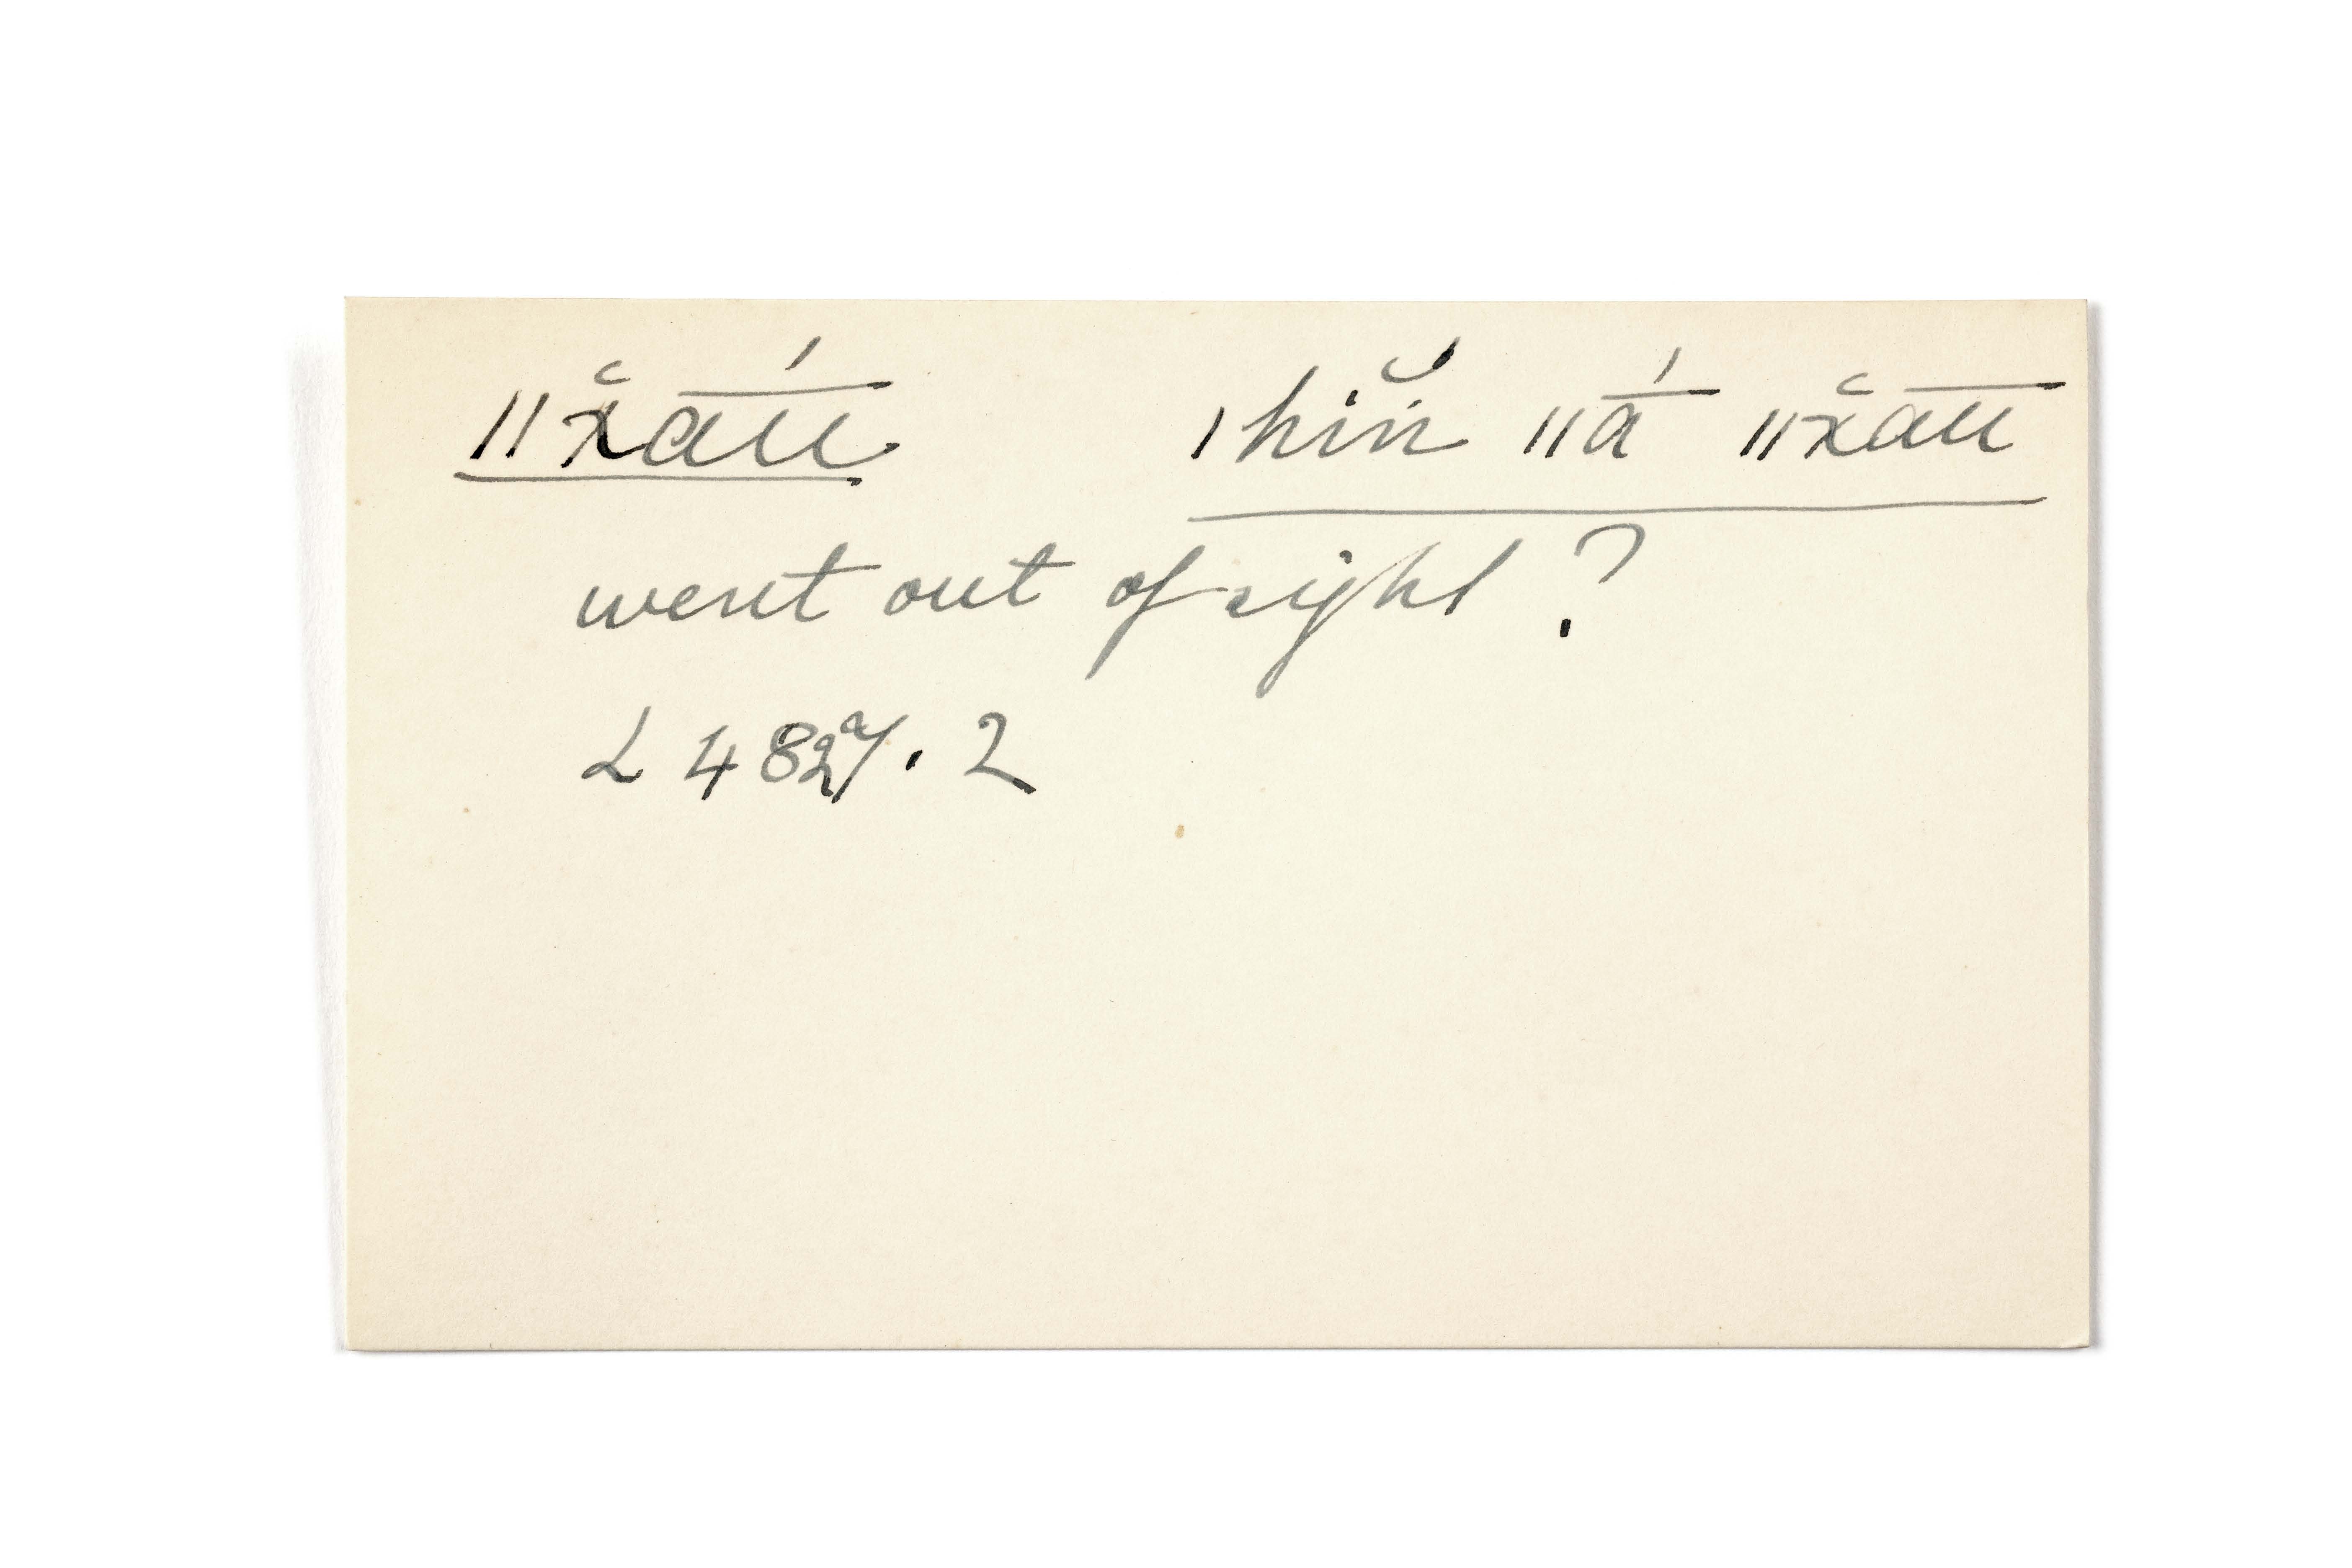 ǁx̆a̅ú̅ ǀhĭń ǁá̅ ǁx̆a̅u̅
went out of sight ?
L 482ᵃ/. 2